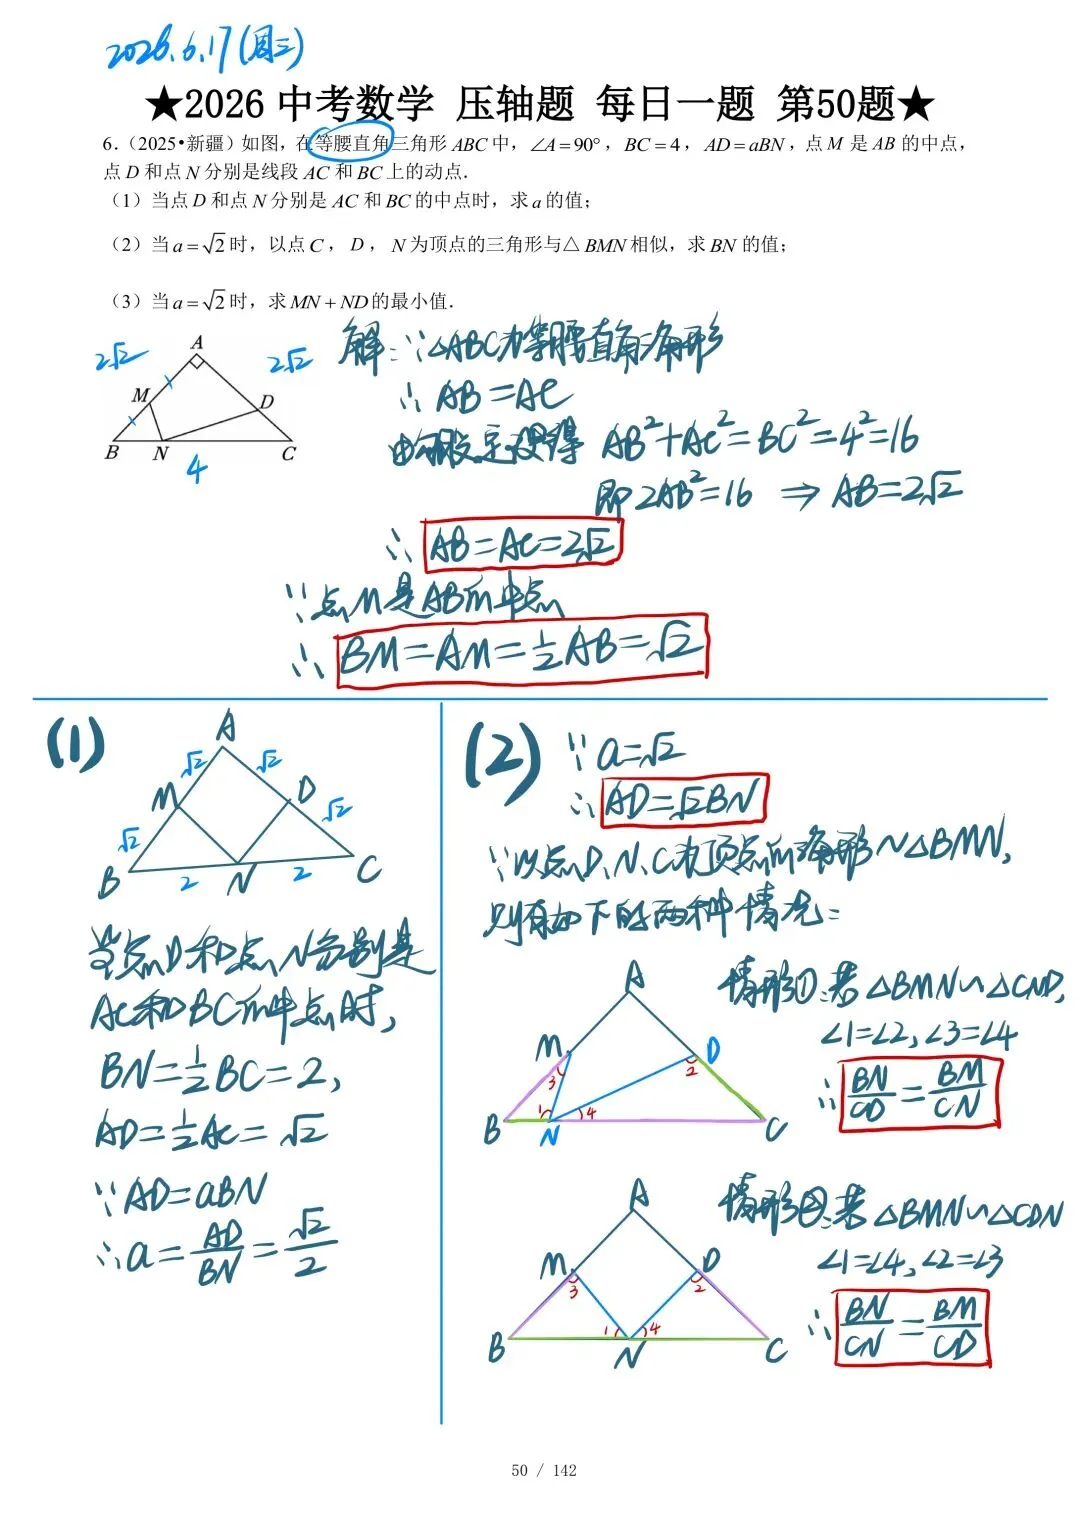 2026.6.17(周三)
★2026 中考数学 压轴题 每日一题 第50题★
6.（2025•新疆）如图，在等腰直角三角形 ABC 中，∠A=90°，BC=4，AD=aBN，点 M 是 AB 的中点，
点 D 和点 N 分别是线段 AC 和 BC 上的动点．
（1）当点 D 和点 N 分别是 AC 和 BC 的中点时，求 a 的值；
（2）当 a=√2 时，以点 C，D，N 为顶点的三角形与△BMN 相似，求 BN 的值；
（3）当 a=√2 时，求 MN+ND 的最小值．
2√2 A 2√2
M D
B N C
4
解：∵△ABC为等腰直角三角形
∴AB=AC
由勾股定理得 AB²+AC²=BC²=4²=16
即2AB²=16 ⇒ AB=2√2
∴AB=AC=2√2
∵点M是AB的中点
∴BM=AM=½AB=√2
(1)
A
√2 √2
M D
√2 √2
B 2 N 2 C
当点D和点N分别是
AC和BC的中点时，
BN=½BC=2，
AD=½AC=√2
∵AD=aBN
∴a=AD/BN=√2/2
(2) ∵a=√2
∴AD=√2BN
∵以点D、N、C为顶点的三角形∽△BMN，
则有如下的两种情况：
A
M D
3 2
B 1 N 4 C
情形①：若△BMN∽△CND，
∠1=∠2，∠3=∠4
∴BN/CD=BM/CN
A
M D
3 2
B 1 N 4 C
情形②：若△BMN∽△CDN
∠1=∠4，∠2=∠3
∴BN/CN=BM/CD
50 / 142